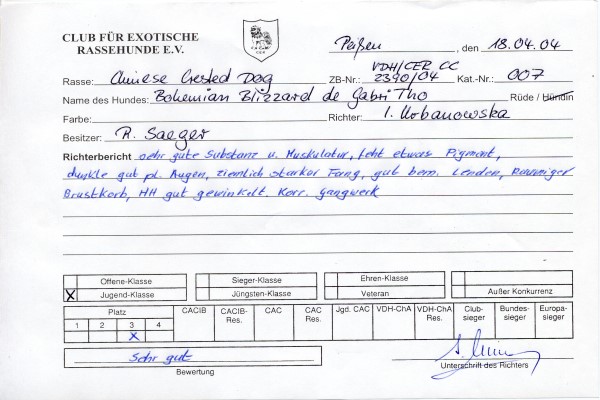 CLUB FÜR EXOTISCHE
RASSEHUNDE E.V.
Peißen, den 18.04.04
Rasse: Chinese Crested Dog ZB-Nr.: VDH/CER CC 2390/04 Kat.-Nr.: 007
Name des Hundes: Bohemian Blizzard de Gabritho Rüde / Hündin
Farbe: Richter: I. Urbanowska
Besitzer: R. Saeger
Richterbericht sehr gute Substanz u. Muskulatur, fehlt etwas Pigment,
dunkle gut pl. Augen, ziemlich starker Fang, gut bem. Lenden, Raumiger
Brustkorb, HH gut gewinkelt. Korr. Gangwerk
Offene-Klasse Sieger-Klasse Ehren-Klasse
X Jugend-Klasse Jüngsten-Klasse Veteran Außer Konkurrenz
Platz CACIB CACIB-Res. CAC CAC Res. Jgd. CAC VDH-ChA VDH-ChA Res. Club-sieger Bundes-sieger Europa-sieger
1 2 3 4
X
Sehr gut
Bewertung Unterschrift des Richters